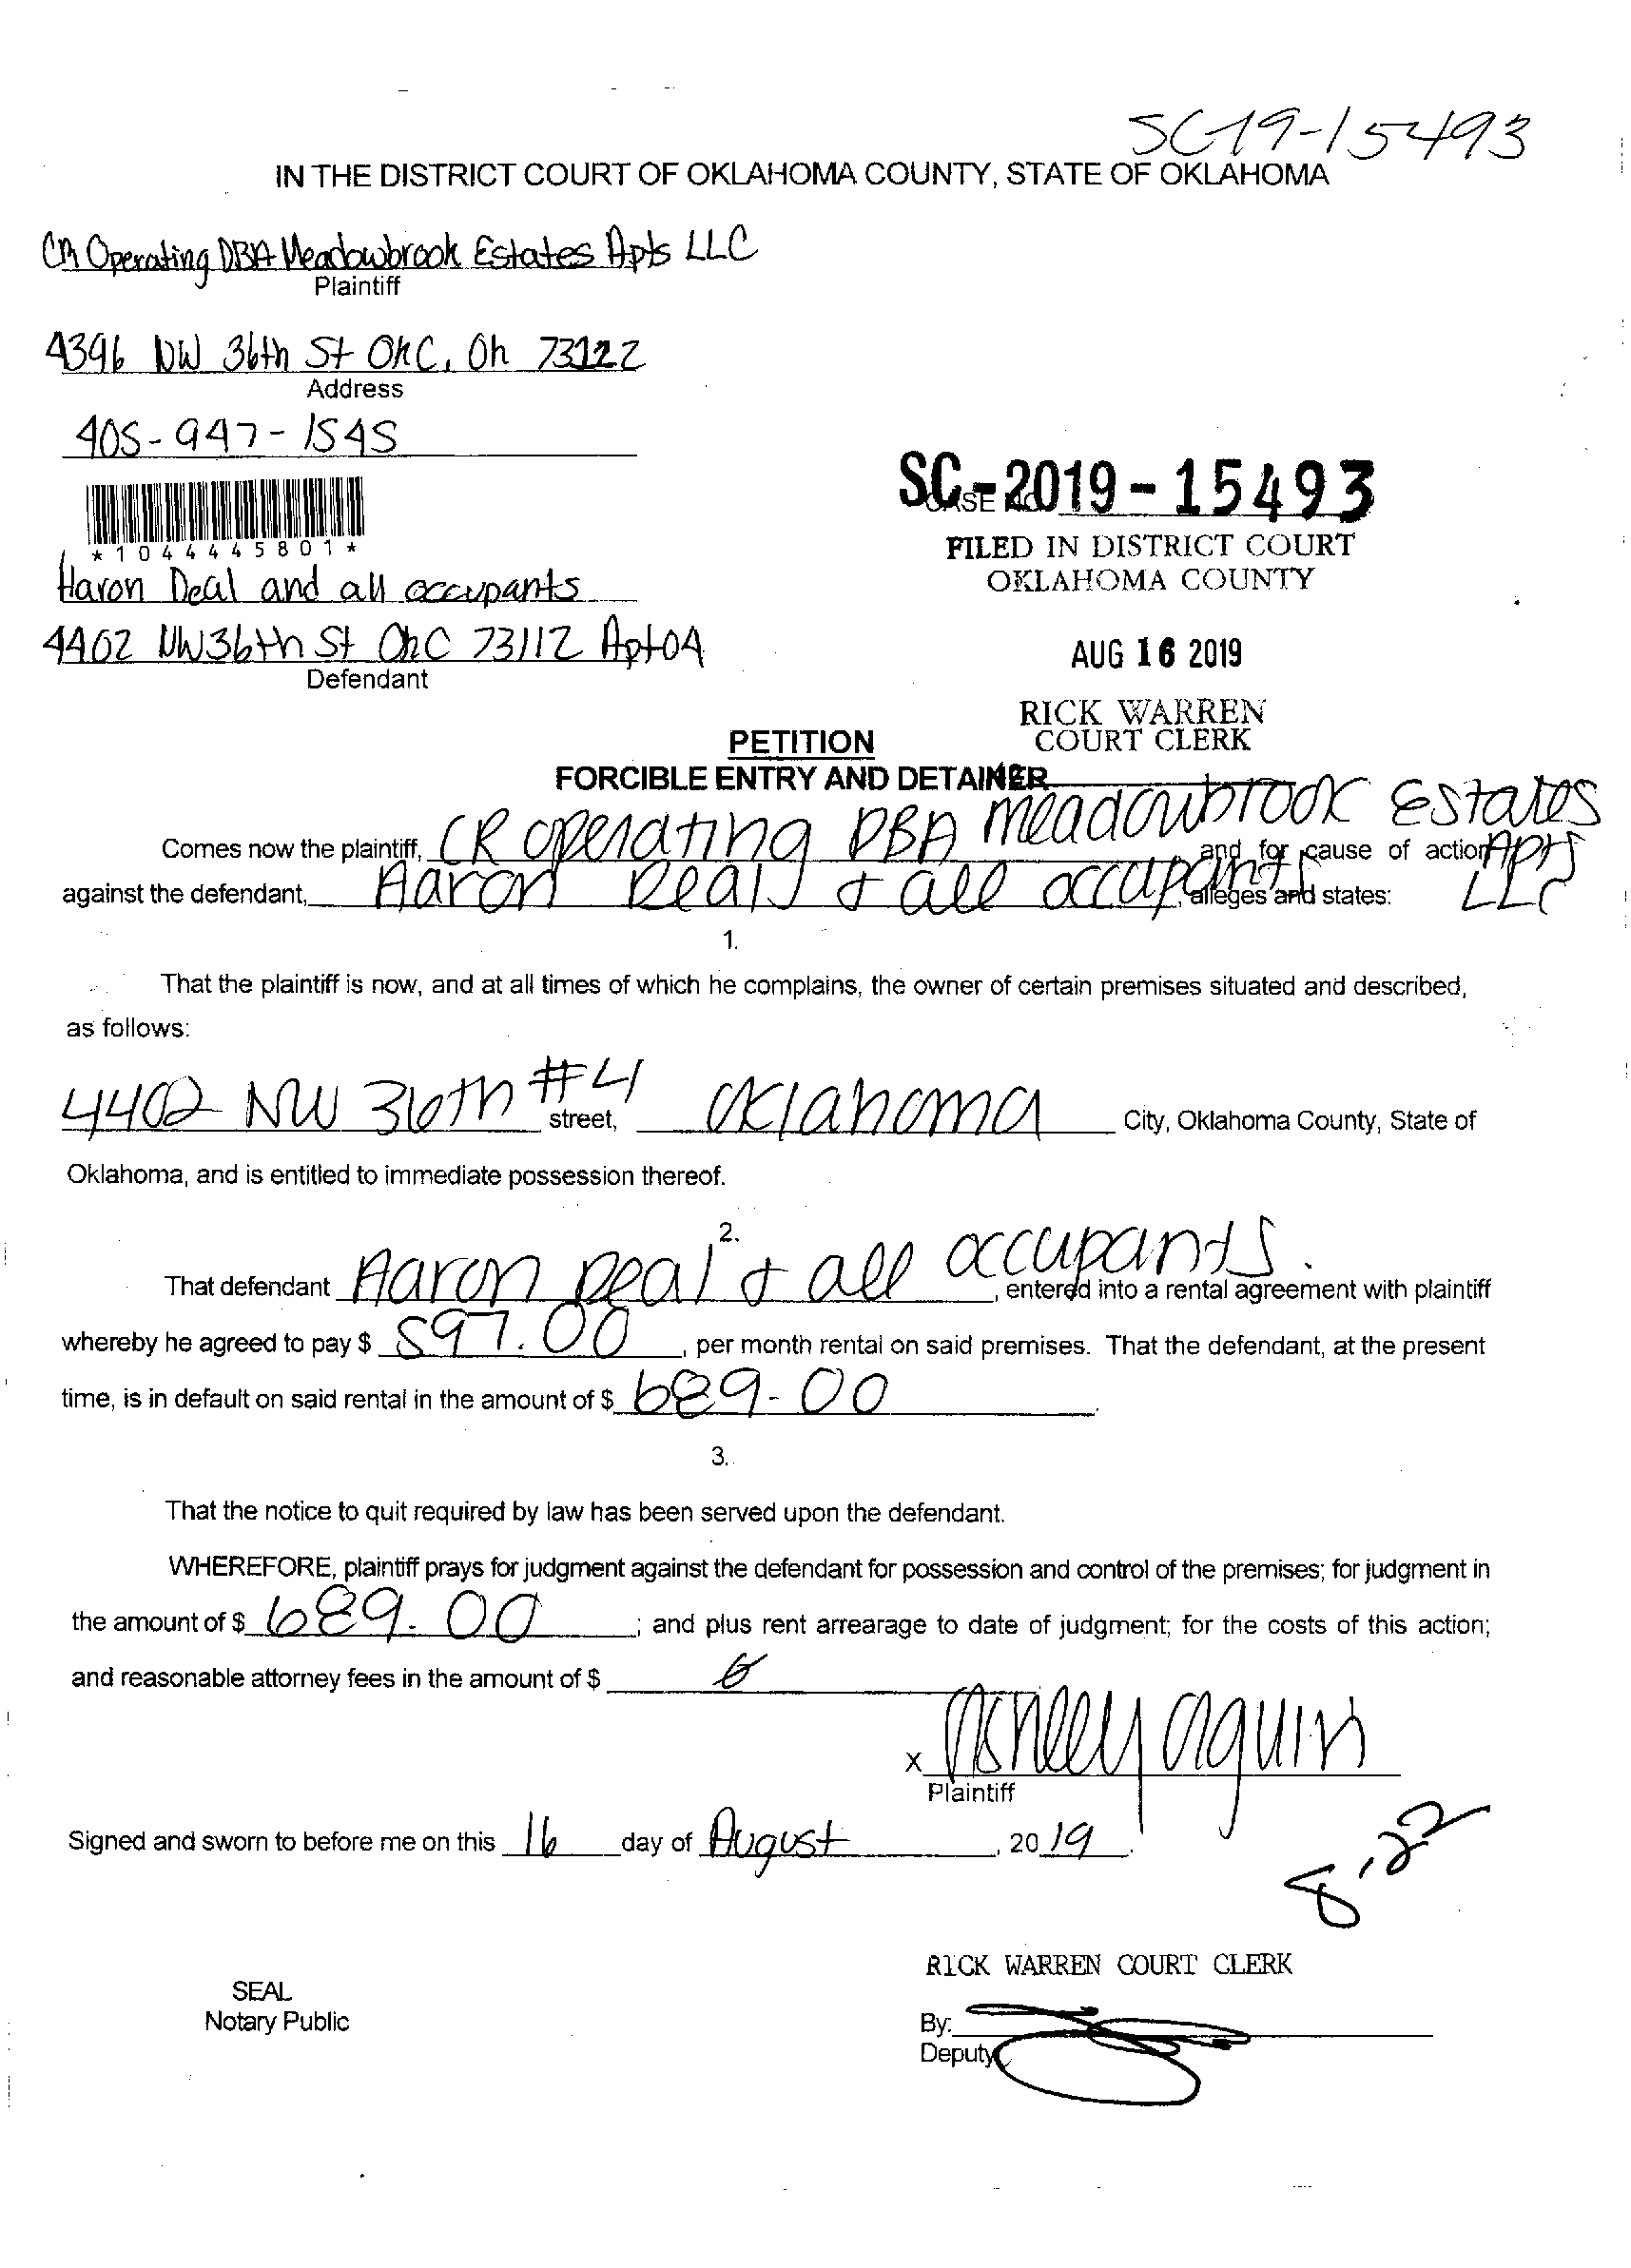 SC19-15493
IN THE DISTRICT COURT OF OKLAHOMA COUNTY, STATE OF OKLAHOMA
CR Operating DBA Meadowbrook Estates Apts LLC
Plaintiff
4396 NW 36th St OKC, OK 73122
Address
405-947-1545
SC-2019-15493
*1044445801*
FILED IN DISTRICT COURT
OKLAHOMA COUNTY
Aaron Deal and all occupants
4402 NW 36th St OKC 73112 Apt 04
Defendant
AUG 16 2019
RICK WARREN
COURT CLERK
PETITION
FORCIBLE ENTRY AND DETAINER
Comes now the plaintiff, CR operating DBA meadowbrook Estates Apts LLC and for cause of action
against the defendant, Aaron Deal & all occupants, alleges and states:
1.
That the plaintiff is now, and at all times of which he complains, the owner of certain premises situated and described,
as follows:
4402 NW 36th #4 street, Oklahoma City, Oklahoma County, State of
Oklahoma, and is entitled to immediate possession thereof.
2.
That defendant Aaron Deal & all occupants, entered into a rental agreement with plaintiff
whereby he agreed to pay $ 597.00, per month rental on said premises. That the defendant, at the present
time, is in default on said rental in the amount of $ 689.00.
3.
That the notice to quit required by law has been served upon the defendant.
WHEREFORE, plaintiff prays for judgment against the defendant for possession and control of the premises; for judgment in
the amount of $ 689.00; and plus rent arrearage to date of judgment; for the costs of this action;
and reasonable attorney fees in the amount of $
x Ashley Aguirr
Plaintiff
Signed and sworn to before me on this 16 day of August, 2019.
8.22
RICK WARREN COURT CLERK
SEAL
Notary Public
By:
Deputy